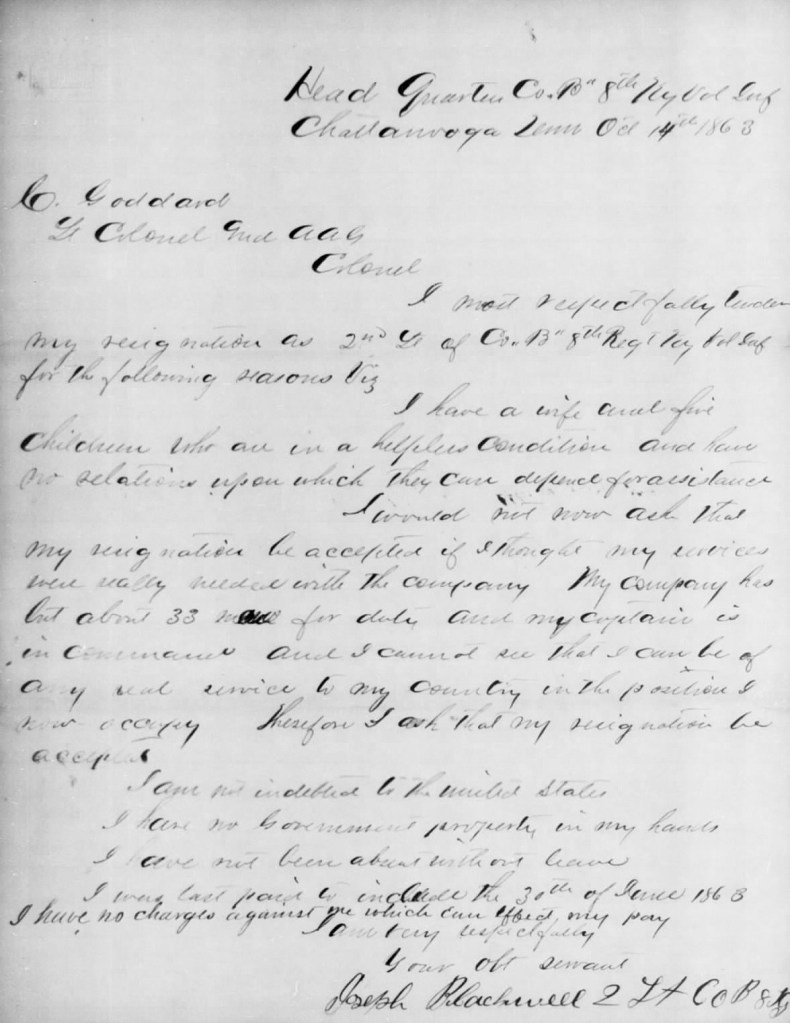 Head Quarters Co "B" 8th Ky Vol Inf
Chattanooga Tenn Oct 14th 1863
C. Goddard
Lt Colonel and AAG
Colonel
I most respectfully tender
my resignation as 2nd Lt of Co "B" 8th Regt Ky Vol Inf
for the following reasons Viz
I have a wife and five
children who are in a helpless condition and have
no relations upon which they can depend for assistance
I would not now ask that
my resignation be accepted if I thought my services
were really needed with the company My company has
but about 33 for duty and my captain is
in command and I cannot see that I can be of
any real service to my country in the position I
now occupy Therefore I ask that my resignation be
accepted
I am not indebted to the united States
I have no Government property in my hands
I have not been absent without leave
I was last paid to include the 30th of June 1863
I have no charges against me which can effect my pay
I am very respectfully
Your obt servant
Joseph Blackwell 2 Lt Co B 8 Ky